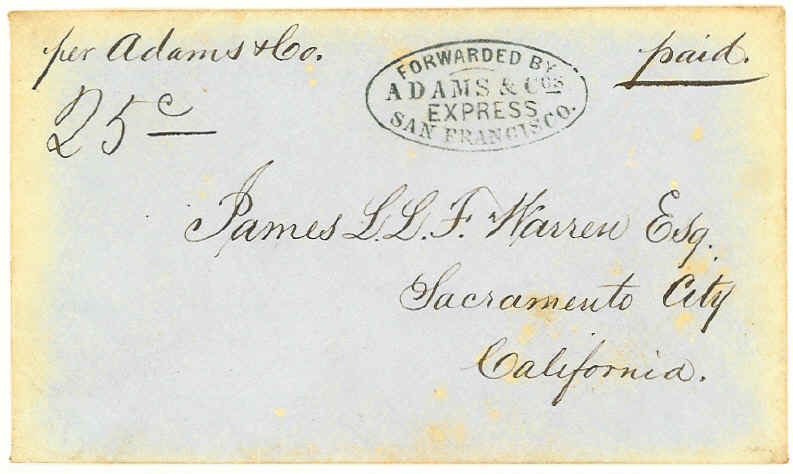 per Adams & Co.
paid.
25c
FORWARDED BY
ADAMS & Cos
EXPRESS
SAN FRANCISCO.
James L. L. F. Warren Esq.
Sacramento City
California.